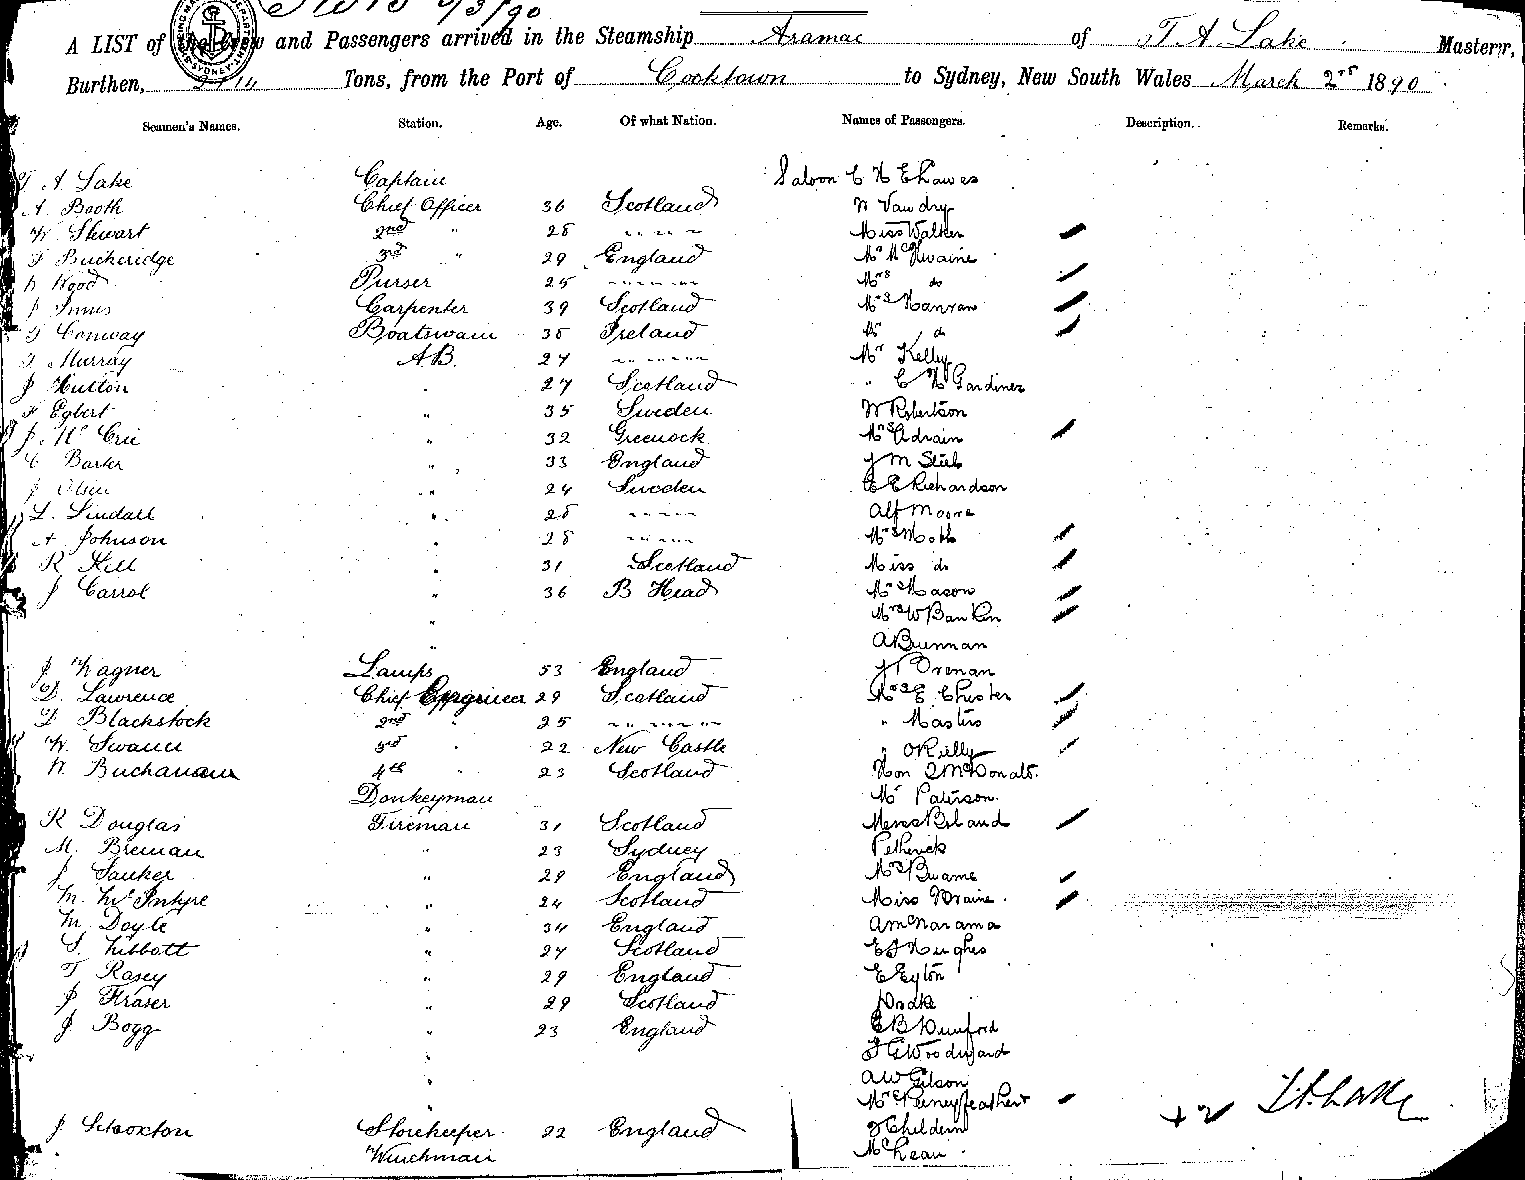 5/3/90
A LIST of the Crew and Passengers arrived in the Steamship Aramac of T A Lake Master,
Burthen, Tons, from the Port of Cooktown to Sydney, New South Wales March 2nd 1890
Seamen's Names. Station. Age. Of what Nation. Names of Passengers. Description. Remarks.
T A Lake Captain Saloon C H E Hawes
A. Booth Chief Officer 36 Scotland W Vawdry
W. Stewart 2nd " 28 " " Miss Walker
F Buckeridge 3rd " 29 England Mr McIlwaine
W Wood Purser 25 " " Mrs do
J Innes Carpenter 39 Scotland Mrs Hanran
T Conway Boatswain 35 Ireland do
T Murray A.B. 27 " " Mr Kelly
J Hutton " 27 Scotland " C H Gardiner
F Egbert " 35 Sweden W Robertson
J. McCrie " 32 Greenock Mrs Adrain
C Barter " 33 England J M
J Olsen " 24 Sweden E E Richardson
L. Lindall " 28 " " Alf Moore
A Johnson " 28 " " Mrs
R Hill " 31 Scotland Miss do
J Carrol " 36 B Head Mrs Mason
" Mrs W
" A Brennan
J Wagner Lamps 53 England J Drenan
D. Lawrence Chief Engineer 29 Scotland Mrs E Chester
D Blackstock 2nd " 25 " " " Masters
W. Swann 3rd " 22 New Castle " O'Reilly
W Buchanan 4th " 23 Scotland Hon McDonald.
Donkeyman Mr Paterson.
R Douglas Fireman 31 Scotland Miss
M. Brennan " 23 Sydney Petherick
J Sauker " 29 England Mrs
M. McIntyre " 24 Scotland Miss
M. Doyle " 34 England A McNamama
S. Libbott " 27 Scotland E J Hughes
T Rasey " 29 England E Eyton
J Fraser " 29 Scotland
J. Bogg " 23 England E B Mumford
" J G Woodward
" A W Gilson
" Mrs Penneyfeather T. A. Lake
J Stoxton Storekeeper 22 England Childern
Winchman McLean